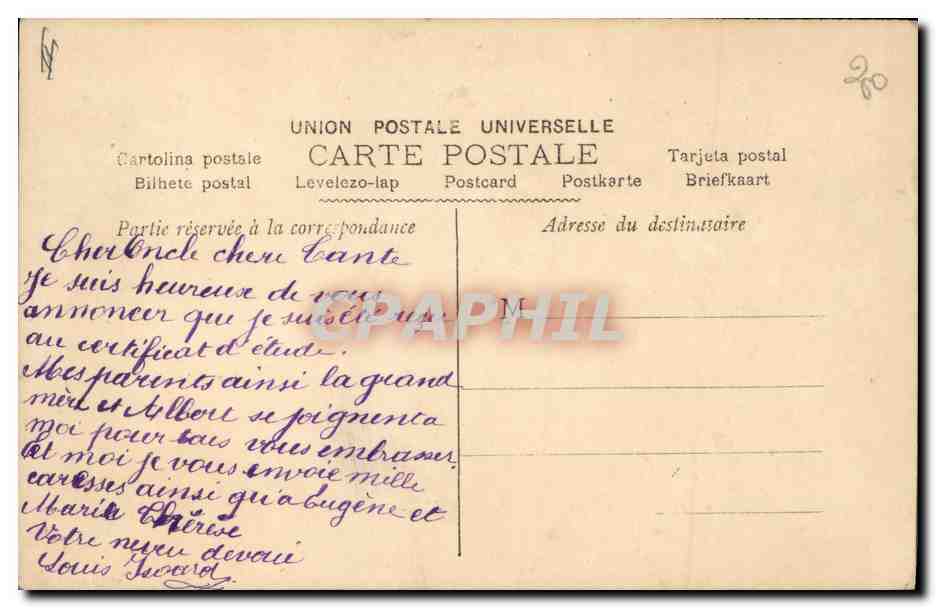 200
UNION POSTALE UNIVERSELLE
CARTE POSTALE
Cartolina postale
Tarjeta postal
Bilhete postal Levelezo-lap Postcard Postkarte Briefkaart
Partie réservée à la correspondance
Adresse du destinataire
Cher Oncle chere Tante
Je suis heureux de vous
annoncer que je suis été reçu
au certificat d'étude.
Mes parents ainsi la grand
mère et Albert se joignent a
moi pour tous vous embrasser.
Et moi je vous envoie mille
caresses ainsi qu'a Eugène et
Marie Thérèse
Votre neveu devoué
Louis Isoard
M
CPAPHIL